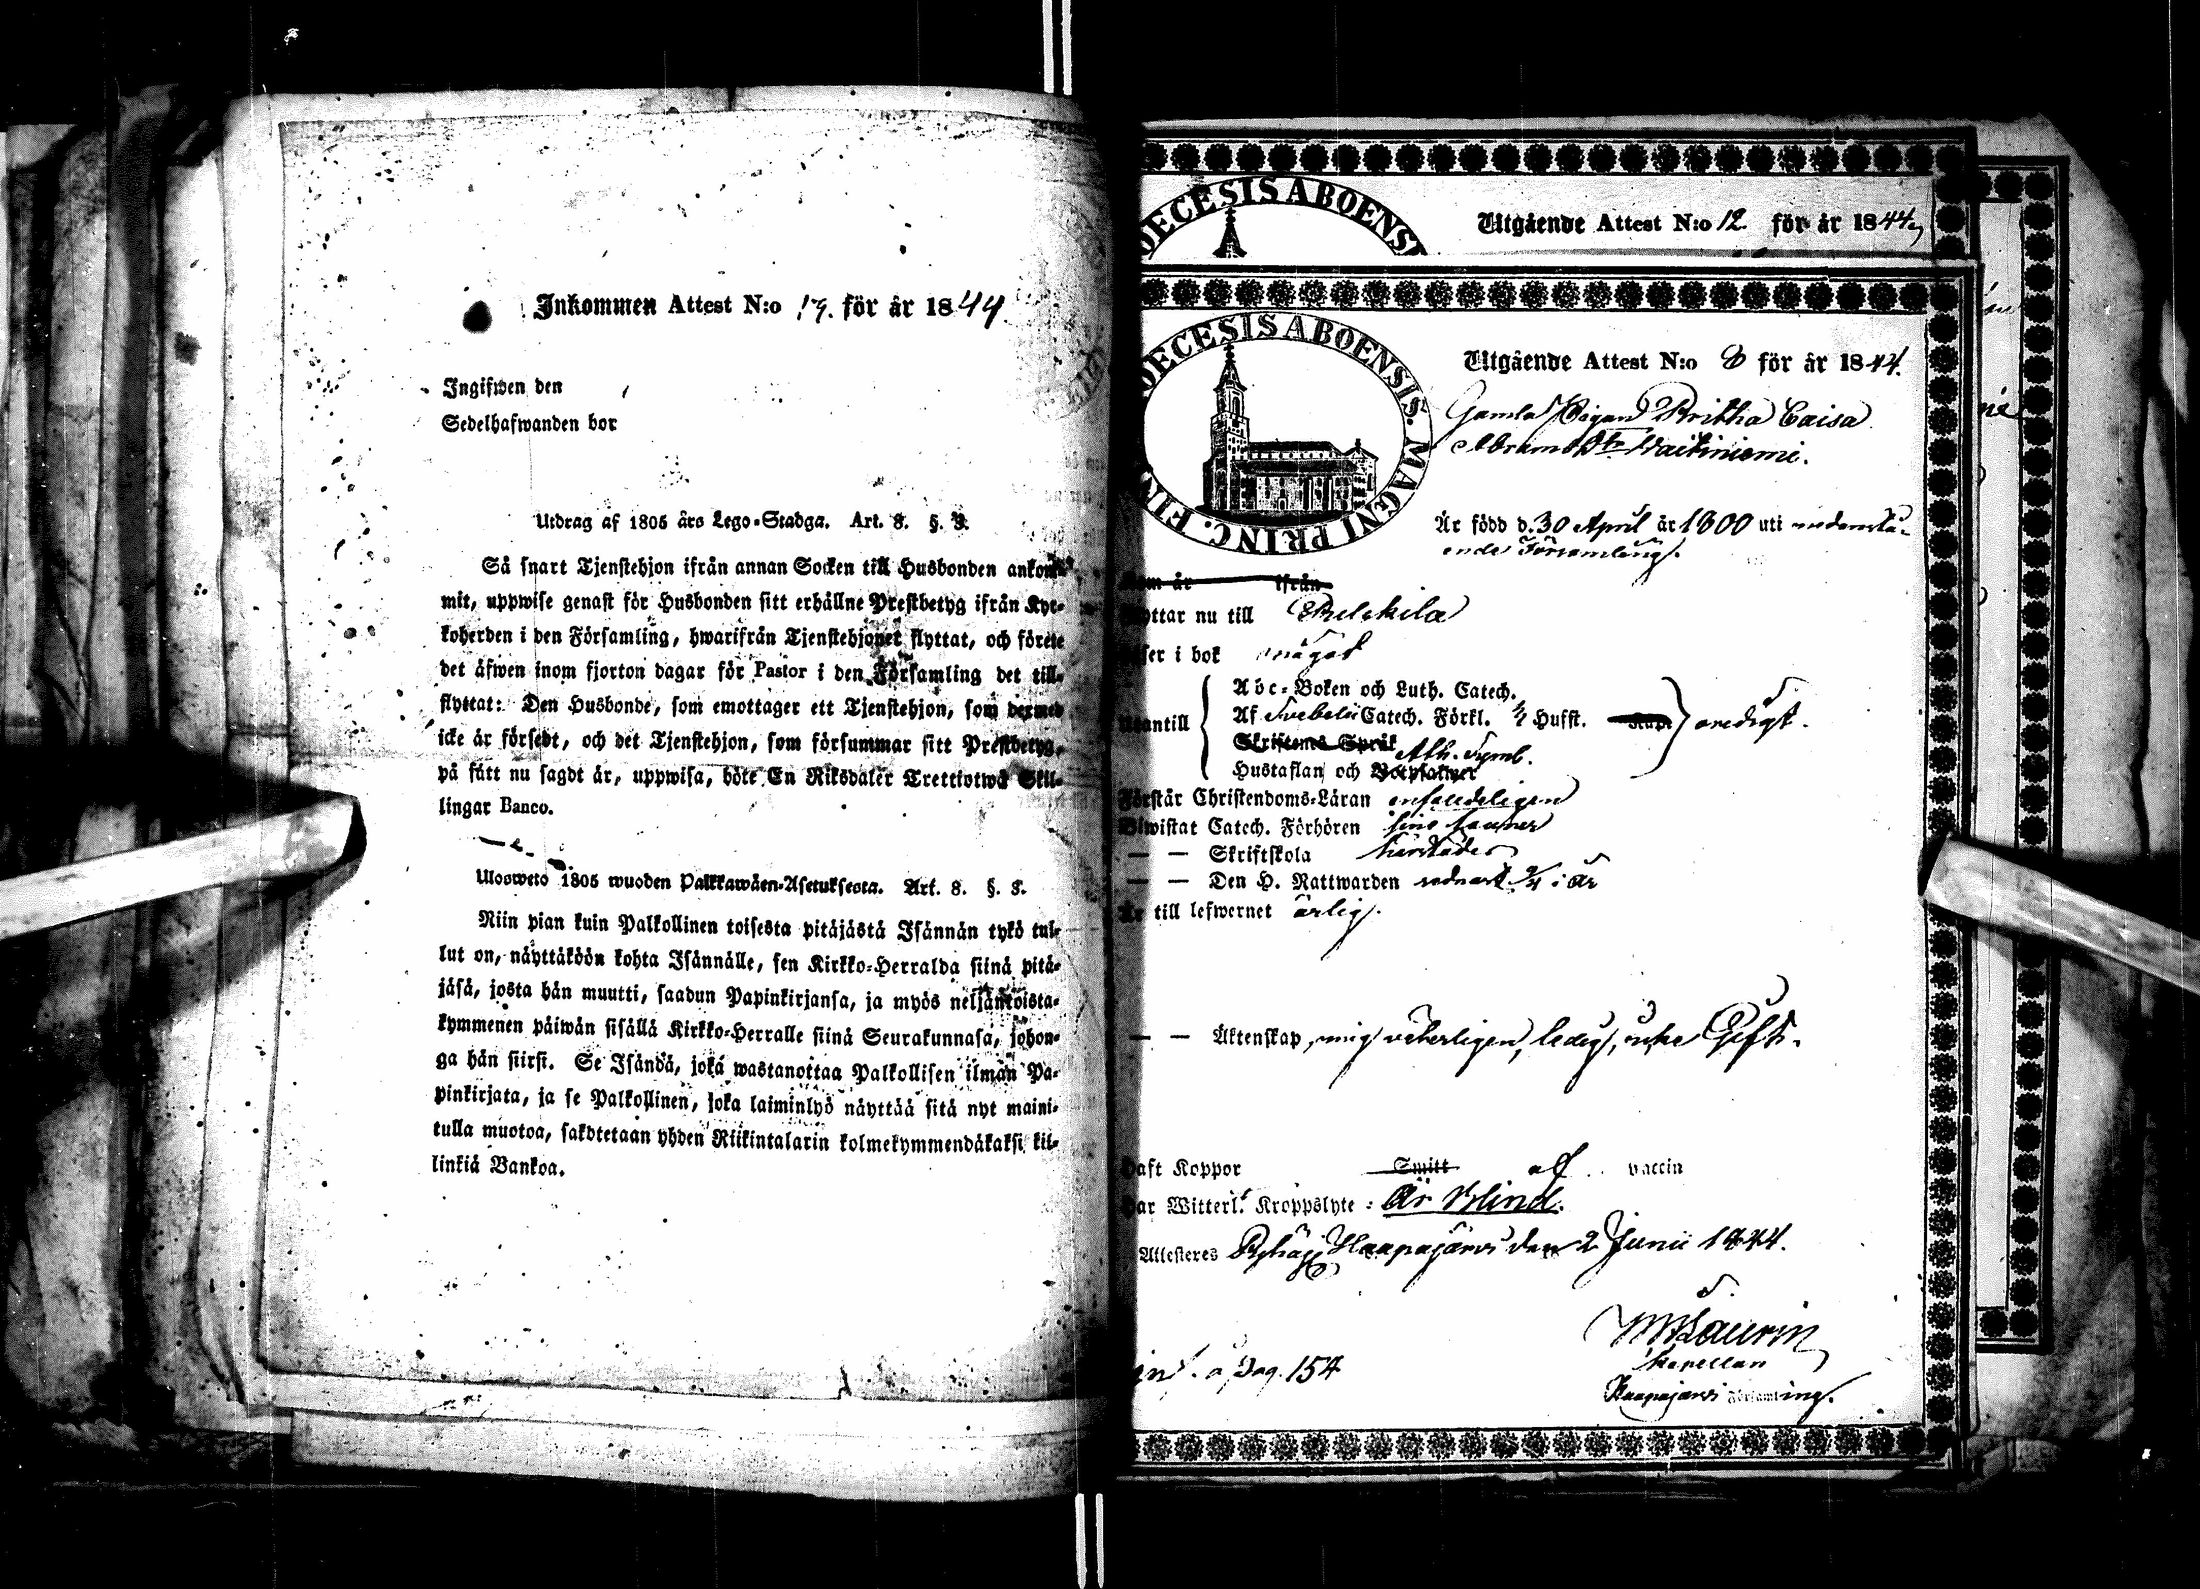 Inkommen Attest N:o 19. för år 1844
Ingifwen den
Sedelhafwanden bor
Utdrag af 1805 års Lego-Stadga. Art. 8. §. 3.
Så snart Tjenstehjon ifrån annan Socken till Husbonden ankom-
mit, uppwise genast för Husbonden sitt erhållne Prestbetyg ifrån Kyr-
koherden i den Församling, hwarifrån Tjenstehjonet flyttat, och förete
det äfwen inom fjorton dagar för Pastor i den Församling det till-
flyttat: Den Husbonde, som emottager ett Tjenstehjon, som dermed
icke är försedt, och det Tjenstehjon, som försummar sitt Prestbetyg,
på sätt nu sagdt är, uppwisa, böte En Riksdaler Trettiotwå Skil-
lingar Banco.
Ulosweto 1805 wuoden Palkkawäen-Asetuksesta. Art. 8. §. 3.
Niin pian kuin Palkollinen toisesta pitäjästä Isännän tykö tul-
lut on, näyttäköön kohta Isännälle, sen Kirkko-Herralda siinä pitä-
jäsä, josta hän muutti, saadun Papinkirjansa, ja myös neljäntoista-
kymmenen päiwän sisällä Kirkko-Herralle siinä Seurakunnasa, johon-
ga hän siirsi. Se Isändä, joka wastanottaa Palkollisen ilman Pa-
pinkirjata, ja se Palkollinen, joka laiminlyö näyttää sitä nyt maini-
tulla muotoa, sakotetaan yhden Riikintalarin kolmekymmendäkaksi kil-
linkiä Bankoa.
OECESIS ABOENSI
Utgående Attest N:o 12. för år 1844
OECESIS ABOENSIS. MAGNI PRINC. FIN
Utgående Attest N:o 8 för år 1844.
Gamla Pigan Britha Caisa
Abrams Dtr Waitiniemi.
Är född d. 30 April år 1800 uti nedanstå-
ende Församling.
Som är ifrån
flyttar nu till
Läser i bok något
Utantill
Abc-Boken och Luth. Catech.
Af Svebelii Catech. Förkl. 1/2 Husst.
Skriftens Språk Ath. Symb.
Hustaflan och Botpsalmer
Förstår Christendoms-Läran enfaldeligen
Biwistat Catech. Förhören
— — Skriftskola härstädes
— — Den H. Nattwarden i år
Är till lefwernet ärlig.
— — Äktenskap, mig veterligen, ledig, icke Gift.
Haft Koppor Smitt af vaccin
Har Witterl. Kroppslyte: Är Blind.
Attesteres Pyhäj. Haapajärvi den 2 Junii 1844.
Laurin
Kapellan
Haapajärvi Församling.
pag. 154